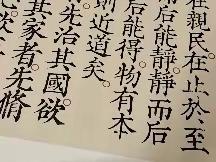 在親民。在止於至
后能靜。靜而后
后能得。物有本
則近道矣。
先治其國。欲
其家者。先脩